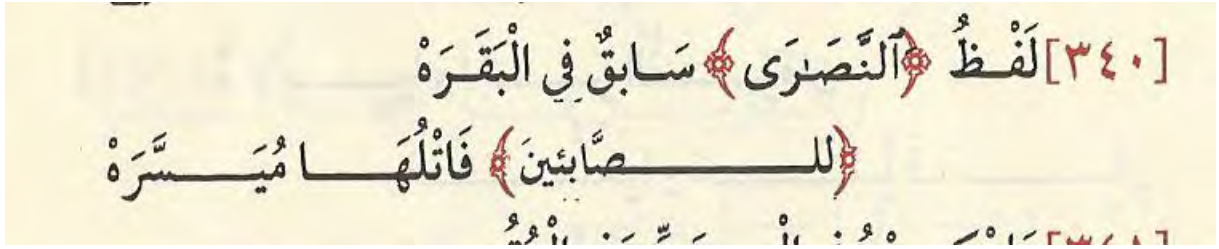 [٣٤٠] لَفْظُ ﴿ٱلنَّصَٰرَى﴾ سَابِقٌ فِي الْبَقَرَهْ
﴿للصَّابِئِينَ﴾ فَاتْلُهَا مُيَسَّرَهْ